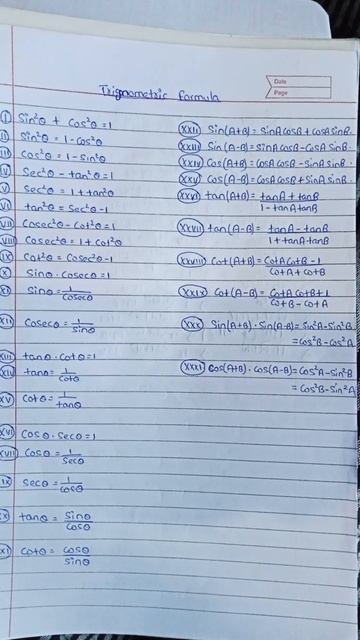 Trignometric formula
Date
Page
(I) Sin²θ + Cos²θ = 1
(II) Sin²θ = 1 - Cos²θ
(III) Cos²θ = 1 - Sin²θ
(IV) Sec²θ - tan²θ = 1
(V) Sec²θ = 1 + tan²θ
(VI) tan²θ = Sec²θ - 1
(VII) Cosec²θ - Cot²θ = 1
(VIII) Cosec²θ = 1 + Cot²θ
(IX) Cot²θ = Cosec²θ - 1
(X) Sinθ · Cosecθ = 1
(XI) Sinθ = 1/Cosecθ
(XII) Cosecθ = 1/Sinθ
(XIII) tanθ · Cotθ = 1
(XIV) tanθ = 1/Cotθ
(XV) Cotθ = 1/tanθ
(XVI) Cosθ · Secθ = 1
(XVII) Cosθ = 1/Secθ
(IX) Secθ = 1/Cosθ
(X) tanθ = Sinθ/Cosθ
(XI) Cotθ = Cosθ/Sinθ
(XXII) Sin(A+B) = SinA CosB + CosA SinB
(XXIII) Sin(A-B) = SinA CosB - CosA SinB
(XXIV) Cos(A+B) = CosA CosB - SinA SinB
(XXV) Cos(A-B) = CosA CosB + SinA SinB
(XXVI) tan(A+B) = tanA + tanB/1 - tanA tanB
(XXVII) tan(A-B) = tanA - tanB/1 + tanA tanB
(XXVIII) Cot(A+B) = CotA CotB - 1/CotA + CotB
(XXIX) Cot(A-B) = CotA CotB + 1/CotB - CotA
(XXX) Sin(A+B) · Sin(A-B) = Sin²A - Sin²B
= Cos²B - Cos²A
(XXXI) Cos(A+B) · Cos(A-B) = Cos²A - Sin²B
= Cos²B - Sin²A